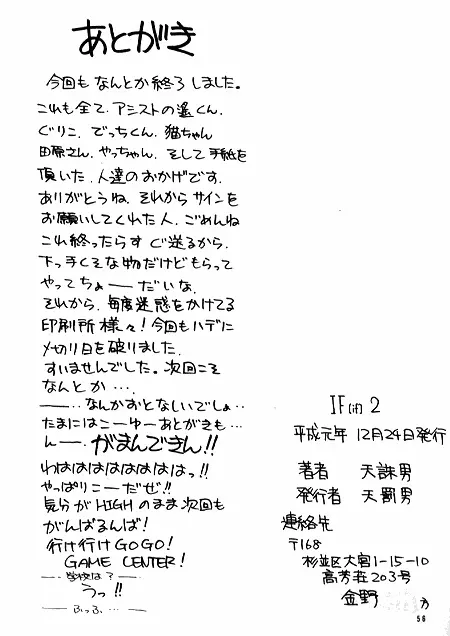 あとがき
今回も なんとか終了しました。
これも全て、アシストの遙くん、
ぐりこ、でっちくん、猫ちゃん
田原さん、やっちゃん、そして手紙を
頂いた、人達のおかげです。
ありがとうね、それからサインを
お願いしてくれた人、ごめんね
これ終ったらすぐ送るから、
下っ手くそな物だけどもらって
やってちょーーだいな、
それから、毎度迷惑をかけてる
印刷所様々!今回もハデに
〆切り日を破りました、
すいませんでした。次回こそ
なんとか…、
——‥なんかおとなしいでしょ‥
たまにはこーゆーあとがきも…
んー、がまんできん!!
わはははははははっ!!
やっぱりこーだぜ!!
気分がHIGHのまま次回も
がんばるんば!
行け行けGOGO!
GAME CENTER!
——学校は?——
うっ!!
——ふっふ…——
IF(if)2
平成元年 12月24日発行
著者 天誅男
発行者 天罰男
連絡先
〒168
杉並区大宮1-15-10
高芳荘203号
金野
56